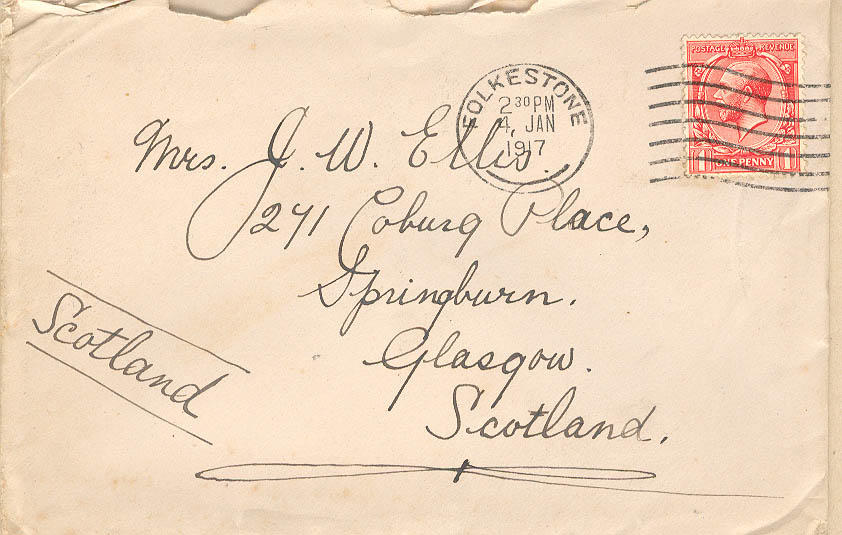 POSTAGE REVENUE
ONE PENNY
FOLKESTONE
2 30 PM
4 JAN
1917
Mrs. J. W. Ellis.
271 Coburg Place,
Springburn.
Glasgow.
Scotland.
Scotland